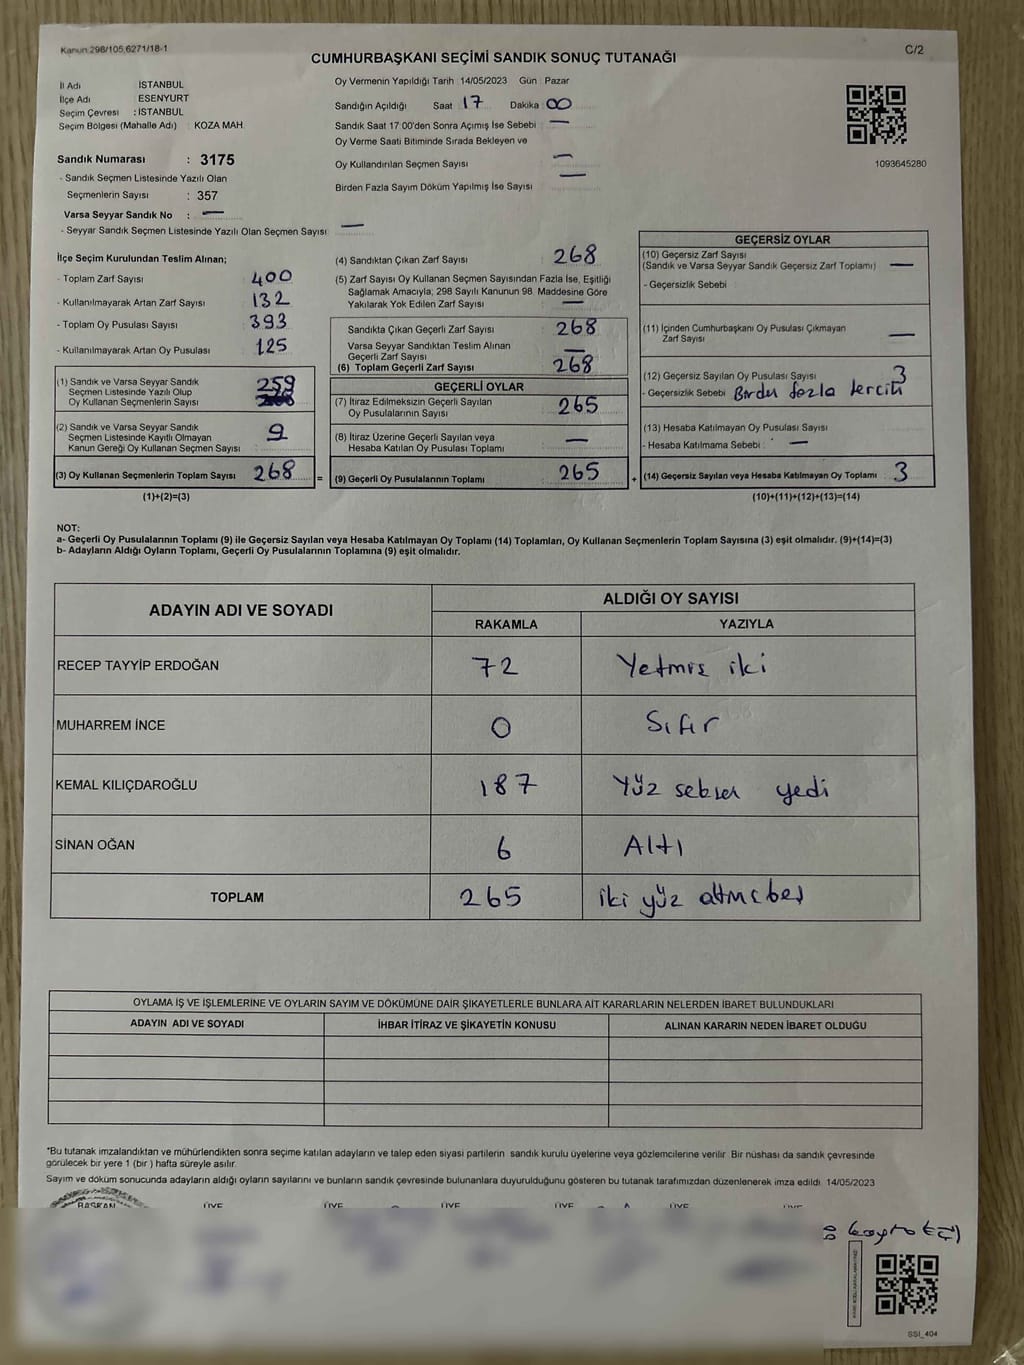 Kanun 298/105,6271/18-1
C/2
CUMHURBAŞKANI SEÇİMİ SANDIK SONUÇ TUTANAĞI
İl Adı İSTANBUL
İlçe Adı ESENYURT
Seçim Çevresi : İSTANBUL
Seçim Bölgesi (Mahalle Adı) : KOZA MAH.
Sandık Numarası : 3175
- Sandık Seçmen Listesinde Yazılı Olan
Seçmenlerin Sayısı : 357
Varsa Seyyar Sandık No : —
- Seyyar Sandık Seçmen Listesinde Yazılı Olan Seçmen Sayısı —
Oy Vermenin Yapıldığı Tarih :14/05/2023 Gün : Pazar
Sandığın Açıldığı Saat : 17 Dakika : 00
Sandık Saat 17:00'den Sonra Açımış İse Sebebi : —
Oy Verme Saati Bitiminde Sırada Bekleyen ve
Oy Kullandırılan Seçmen Sayısı —
Birden Fazla Sayım Döküm Yapılmış İse Sayısı —
1093645280
İlçe Seçim Kurulundan Teslim Alınan;
- Toplam Zarf Sayısı 400
- Kullanılmayarak Artan Zarf Sayısı 132
- Toplam Oy Pusulası Sayısı 393
- Kullanılmayarak Artan Oy Pusulası 125
(1) Sandık ve Varsa Seyyar Sandık
Seçmen Listesinde Yazılı Olup
Oy Kullanan Seçmenlerin Sayısı 259
(2) Sandık ve Varsa Seyyar Sandık
Seçmen Listesinde Kayıtlı Olmayan
Kanun Gereği Oy Kullanan Seçmen Sayısı 9
(3) Oy Kullanan Seçmenlerin Toplam Sayısı 268 =
(1)+(2)=(3)
(4) Sandıktan Çıkan Zarf Sayısı 268
(5) Zarf Sayısı Oy Kullanan Seçmen Sayısından Fazla İse, Eşitliği
Sağlamak Amacıyla; 298 Sayılı Kanunun 98. Maddesine Göre
Yakılarak Yok Edilen Zarf Sayısı —
Sandıkta Çıkan Geçerli Zarf Sayısı 268
Varsa Seyyar Sandıktan Teslim Alınan
Geçerli Zarf Sayısı —
(6) Toplam Geçerli Zarf Sayısı 268
GEÇERLİ OYLAR
(7) İtiraz Edilmeksizin Geçerli Sayılan
Oy Pusulalarının Sayısı 265
(8) İtiraz Üzerine Geçerli Sayılan veya
Hesaba Katılan Oy Pusulası Toplamı —
(9) Geçerli Oy Pusulalarının Toplamı 265 +
GEÇERSİZ OYLAR
(10) Geçersiz Zarf Sayısı
(Sandık ve Varsa Seyyar Sandık Geçersiz Zarf Toplamı) —
- Geçersizlik Sebebi
(11) İçinden Cumhurbaşkanı Oy Pusulası Çıkmayan
Zarf Sayısı —
(12) Geçersiz Sayılan Oy Pusulası Sayısı 3
- Geçersizlik Sebebi Birden fazla tercih
(13) Hesaba Katılmayan Oy Pusulası Sayısı
- Hesaba Katılmama Sebebi : —
(14) Geçersiz Sayılan veya Hesaba Katılmayan Oy Toplamı 3
(10)+(11)+(12)+(13)=(14)
NOT:
a- Geçerli Oy Pusulalarının Toplamı (9) ile Geçersiz Sayılan veya Hesaba Katılmayan Oy Toplamı (14) Toplamları, Oy Kullanan Seçmenlerin Toplam Sayısına (3) eşit olmalıdır. (9)+(14)=(3)
b- Adayların Aldığı Oyların Toplamı, Geçerli Oy Pusulalarının Toplamına (9) eşit olmalıdır.
ADAYIN ADI VE SOYADI
ALDIĞI OY SAYISI
RAKAMLA YAZIYLA
RECEP TAYYİP ERDOĞAN 72 Yetmiş iki
MUHARREM İNCE 0 Sıfır
KEMAL KILIÇDAROĞLU 187 Yüz seksen yedi
SİNAN OĞAN 6 Altı
TOPLAM 265 iki yüz altmışbeş
OYLAMA İŞ VE İŞLEMLERİNE VE OYLARIN SAYIM VE DÖKÜMÜNE DAİR ŞİKAYETLERLE BUNLARA AİT KARARLARIN NELERDEN İBARET BULUNDUKLARI
ADAYIN ADI VE SOYADI İHBAR İTİRAZ VE ŞİKAYETİN KONUSU ALINAN KARARIN NEDEN İBARET OLDUĞU
*Bu tutanak imzalandıktan ve mühürlendikten sonra seçime katılan adayların ve talep eden siyasi partilerin sandık kurulu üyelerine veya gözlemcilerine verilir. Bir nüshası da sandık çevresinde
görülecek bir yere 1 (bir ) hafta süreyle asılır.
Sayım ve döküm sonucunda adayların aldığı oyların sayılarını ve bunların sandık çevresinde bulunanlara duyurulduğunu gösteren bu tutanak tarafımızdan düzenlenerek imza edildi. 14/05/2023
BAŞKAN ÜYE ÜYE ÜYE ÜYE ÜYE ÜYE
SSİ_404